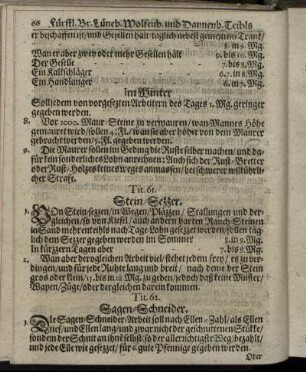 66 Fürstl. Br. Lüneb. Wolfenb. und Dannenb. Teichs
er beschaffen ist, und Gesellen hält täglich nebest gemeinem Tranck/
8. in 9. Mg.
Wan er aber zwey oder mehr Gesellen hält 9. bis 10. Mg.
Der Geselle 7. bis 8. Mg.
Ein Kalkschläger 6. 7. in 8. Mg.
Ein Handlanger 6. in 7. Mg.
Im Winter
Soll jedem von vorgesezten Arbeitern des Tages 1. Mg. geringer
gegeben werden.
8. Vor 1000. Maur-Steine zu vermauren/ wan Mannes Höhe
gemauret wird/ sollen 4. Fl. wan sie aber höher von dem Maurer
gebracht werden/ 5. Fl. gegeben werden.
9. Die Maurer sollen im Beding die Rüst selber machen/ und da-
für kein sonderliches Lohn anrechnen: Auch sich der Rüst-Bretter
oder Rüst-Holzes keines weges anmassen/ bey schwerer willkührli-
cher Straff.
Tit. 61.
Stein-Sezzer.
1. Von Stein sezzen/ in Wegen/ Pläzzen/ Stallungen und der-
gleichen/ so von Kiesel/ auch andern harten Rauch-Steinen
in Sand mehrentheils nach Tage-Lohn gesezzet werden/ sollen täg-
lich dem Sezzer gegeben werden im Sommer 8. in 9. Mg.
In kürzern Tagen aber 7. bis 8. Mg.
2. Wan aber dergleichen Arbeit viel/ stehet jedem frey/ es zu ver-
dingen/ und für jede Ruhte lang und breit/ nach deme der Stein
gros oder klein/ 15. bis in 18. Mg. zu geben/ jedoch daß keine Muster/
Wapen/ Züge/ oder dergleichen darein kommen.
Tit. 62.
Sagen-Schneider.
1. Die Sagen-Schneider-Arbeit soll nach Ellen-Zahl/ als Ellen
tief/ und Ellen lang/ und zwar nicht der geschnittenen Stükke/
sondern der Schnitt an ihme selbst/ so der allernichtigste Weg/ bezahlt/
und jede Elle wie gesezzet/ für 6. gute Pfennige gegeben werden.
Oder